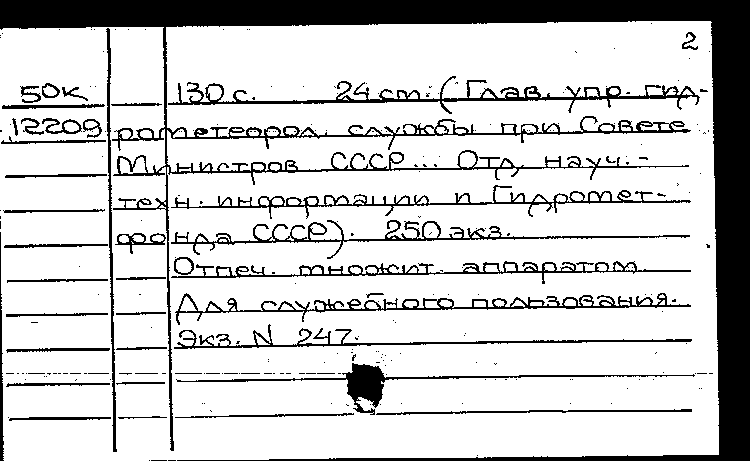 2
50К 130 с. 24 см. (Глав. упр. гид-
12209 рометеорол. службы при Совете
Министров СССР... Отд. науч.-
техн. информации и Гидромет-
фонда СССР). 250 экз.
Отпеч. множит. аппаратом.
Для служебного пользования.
Экз. N 247.